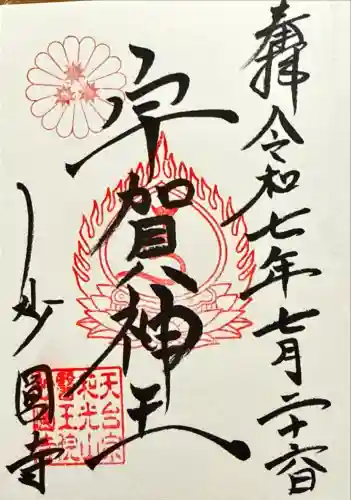 奉拝 令和七年七月二十六日
宇賀神王
妙圓寺
天台宗
和光山
醫王院